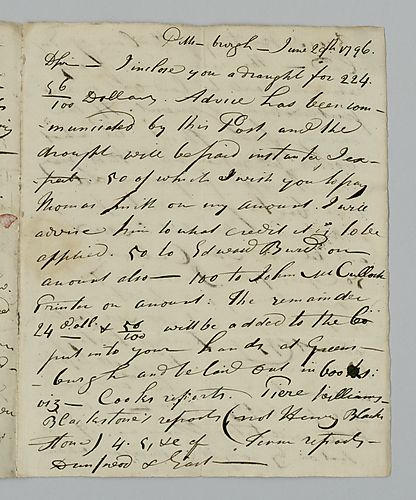 Pittsburgh — June 20th 1796.
Dr Sir — I inclose you a draught for 224.
56/100 Dollars. Advice has been com-
municated by this Post, and the
draught will be paid instanter, I ex-
pect. 50 of which I wish you to pay
Thomas Smith on my account. I will
advise him to what credit it is to be
applied. 50 to Edward Burd on
acount also — 100 to John McCulloch
Printer on acount: The remainder
24 Doll. & 50/100 will be added to the 60
put into your hands at Greens-
burgh and be laid out in books:
viz — Cooks reports. Piere Williams —
Blackstone's reports (not Henry Black
stone) 4. 5, &c of Term reports —
Durnford & East —